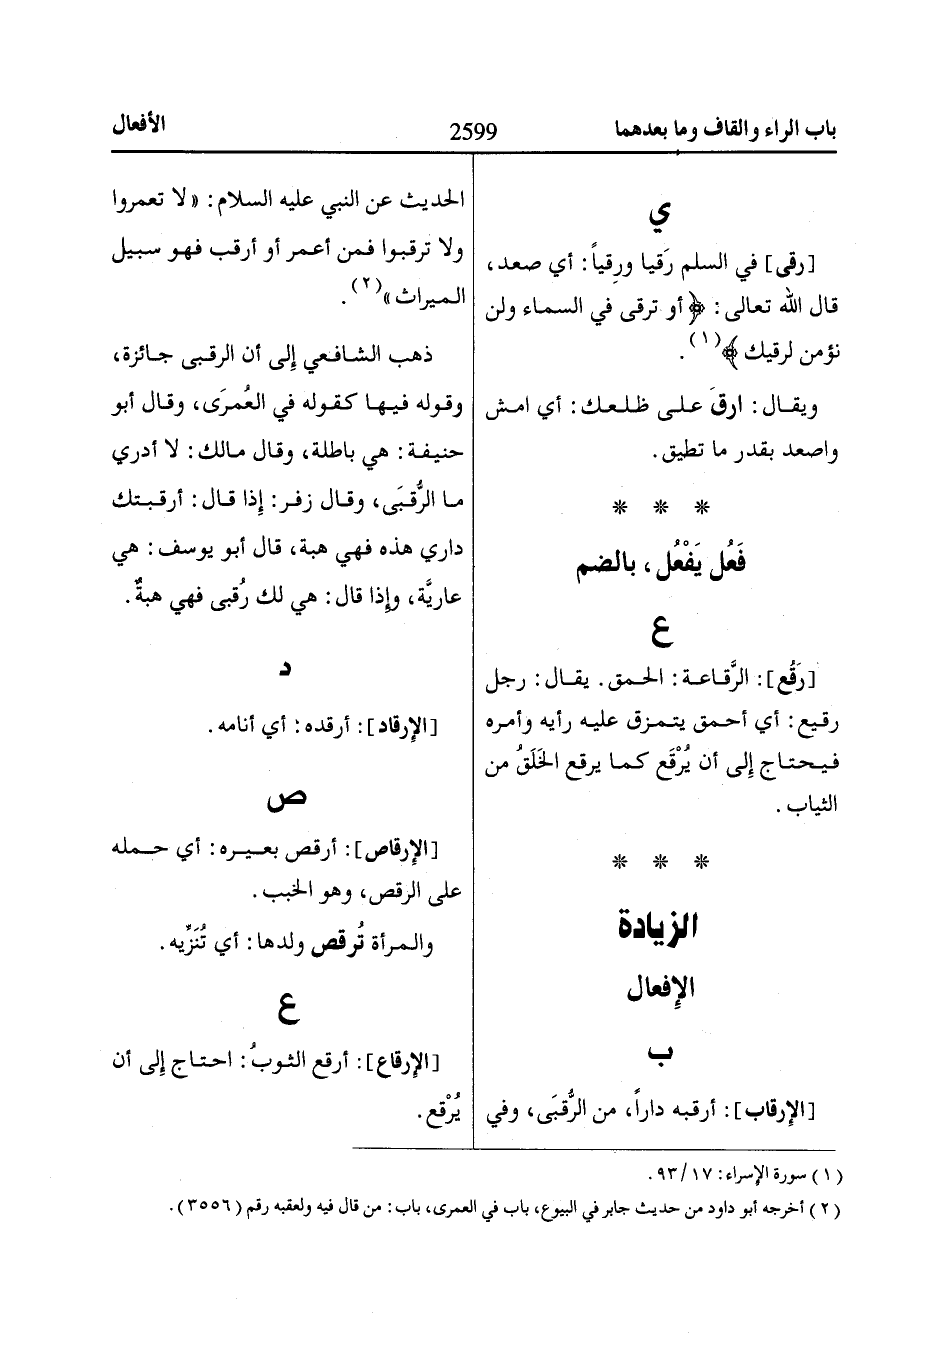 باب الراء والقاف وما بعدهما
2599
الأفعال
ي
[رقى] في السلم رَقيا ورِقياً: أي صعد،
قال الله تعالى: ﴿أو ترقى في السماء ولن
نؤمن لرقيك﴾(١).
ويقال: ارقَ على ظلعك: أي امش
واصعد بقدر ما تطيق.
* * *
فَعُل يَفْعُل، بالضم
ع
[رَقُع]: الرَّقاعة: الحمق. يقال: رجل
رقيع: أي أحمق يتمزق عليه رأيه وأمره
فيحتاج إلى أن يُرْقَع كما يرقع الخَلَقُ من
الثياب.
* * *
الزيادة
الإفعال
ب
[الإرقاب]: أرقبه داراً، من الرُّقبَى، وفي
الحديث عن النبي عليه السلام: «لا تعمروا
ولا ترقبوا فمن أعمر أو أرقب فهو سبيل
الميراث»(٢).
ذهب الشافعي إلى أن الرقبى جائزة،
وقوله فيها كقوله في العُمرَى، وقال أبو
حنيفة: هي باطلة، وقال مالك: لا أدري
ما الرُّقبَى، وقال زفر: إذا قال: أرقبتك
داري هذه فهي هبة، قال أبو يوسف: هي
عاريَّة، وإذا قال: هي لك رُقبى فهي هبةٌ.
د
[الإرقاد]: أرقده: أي أنامه.
ص
[الإرقاص]: أرقص بعيره: أي حمله
على الرقص، وهو الخبب.
والمرأة تُرقص ولدها: أي تُنَزِّيه.
ع
[الإرقاع]: أرقع الثوبُ: احتاج إلى أن
يُرْقع.
(١) سورة الإسراء: ٩٣/١٧.
(٢) أخرجه أبو داود من حديث جابر في البيوع، باب في العمرى، باب: من قال فيه ولعقبه رقم (٣٥٥٦).